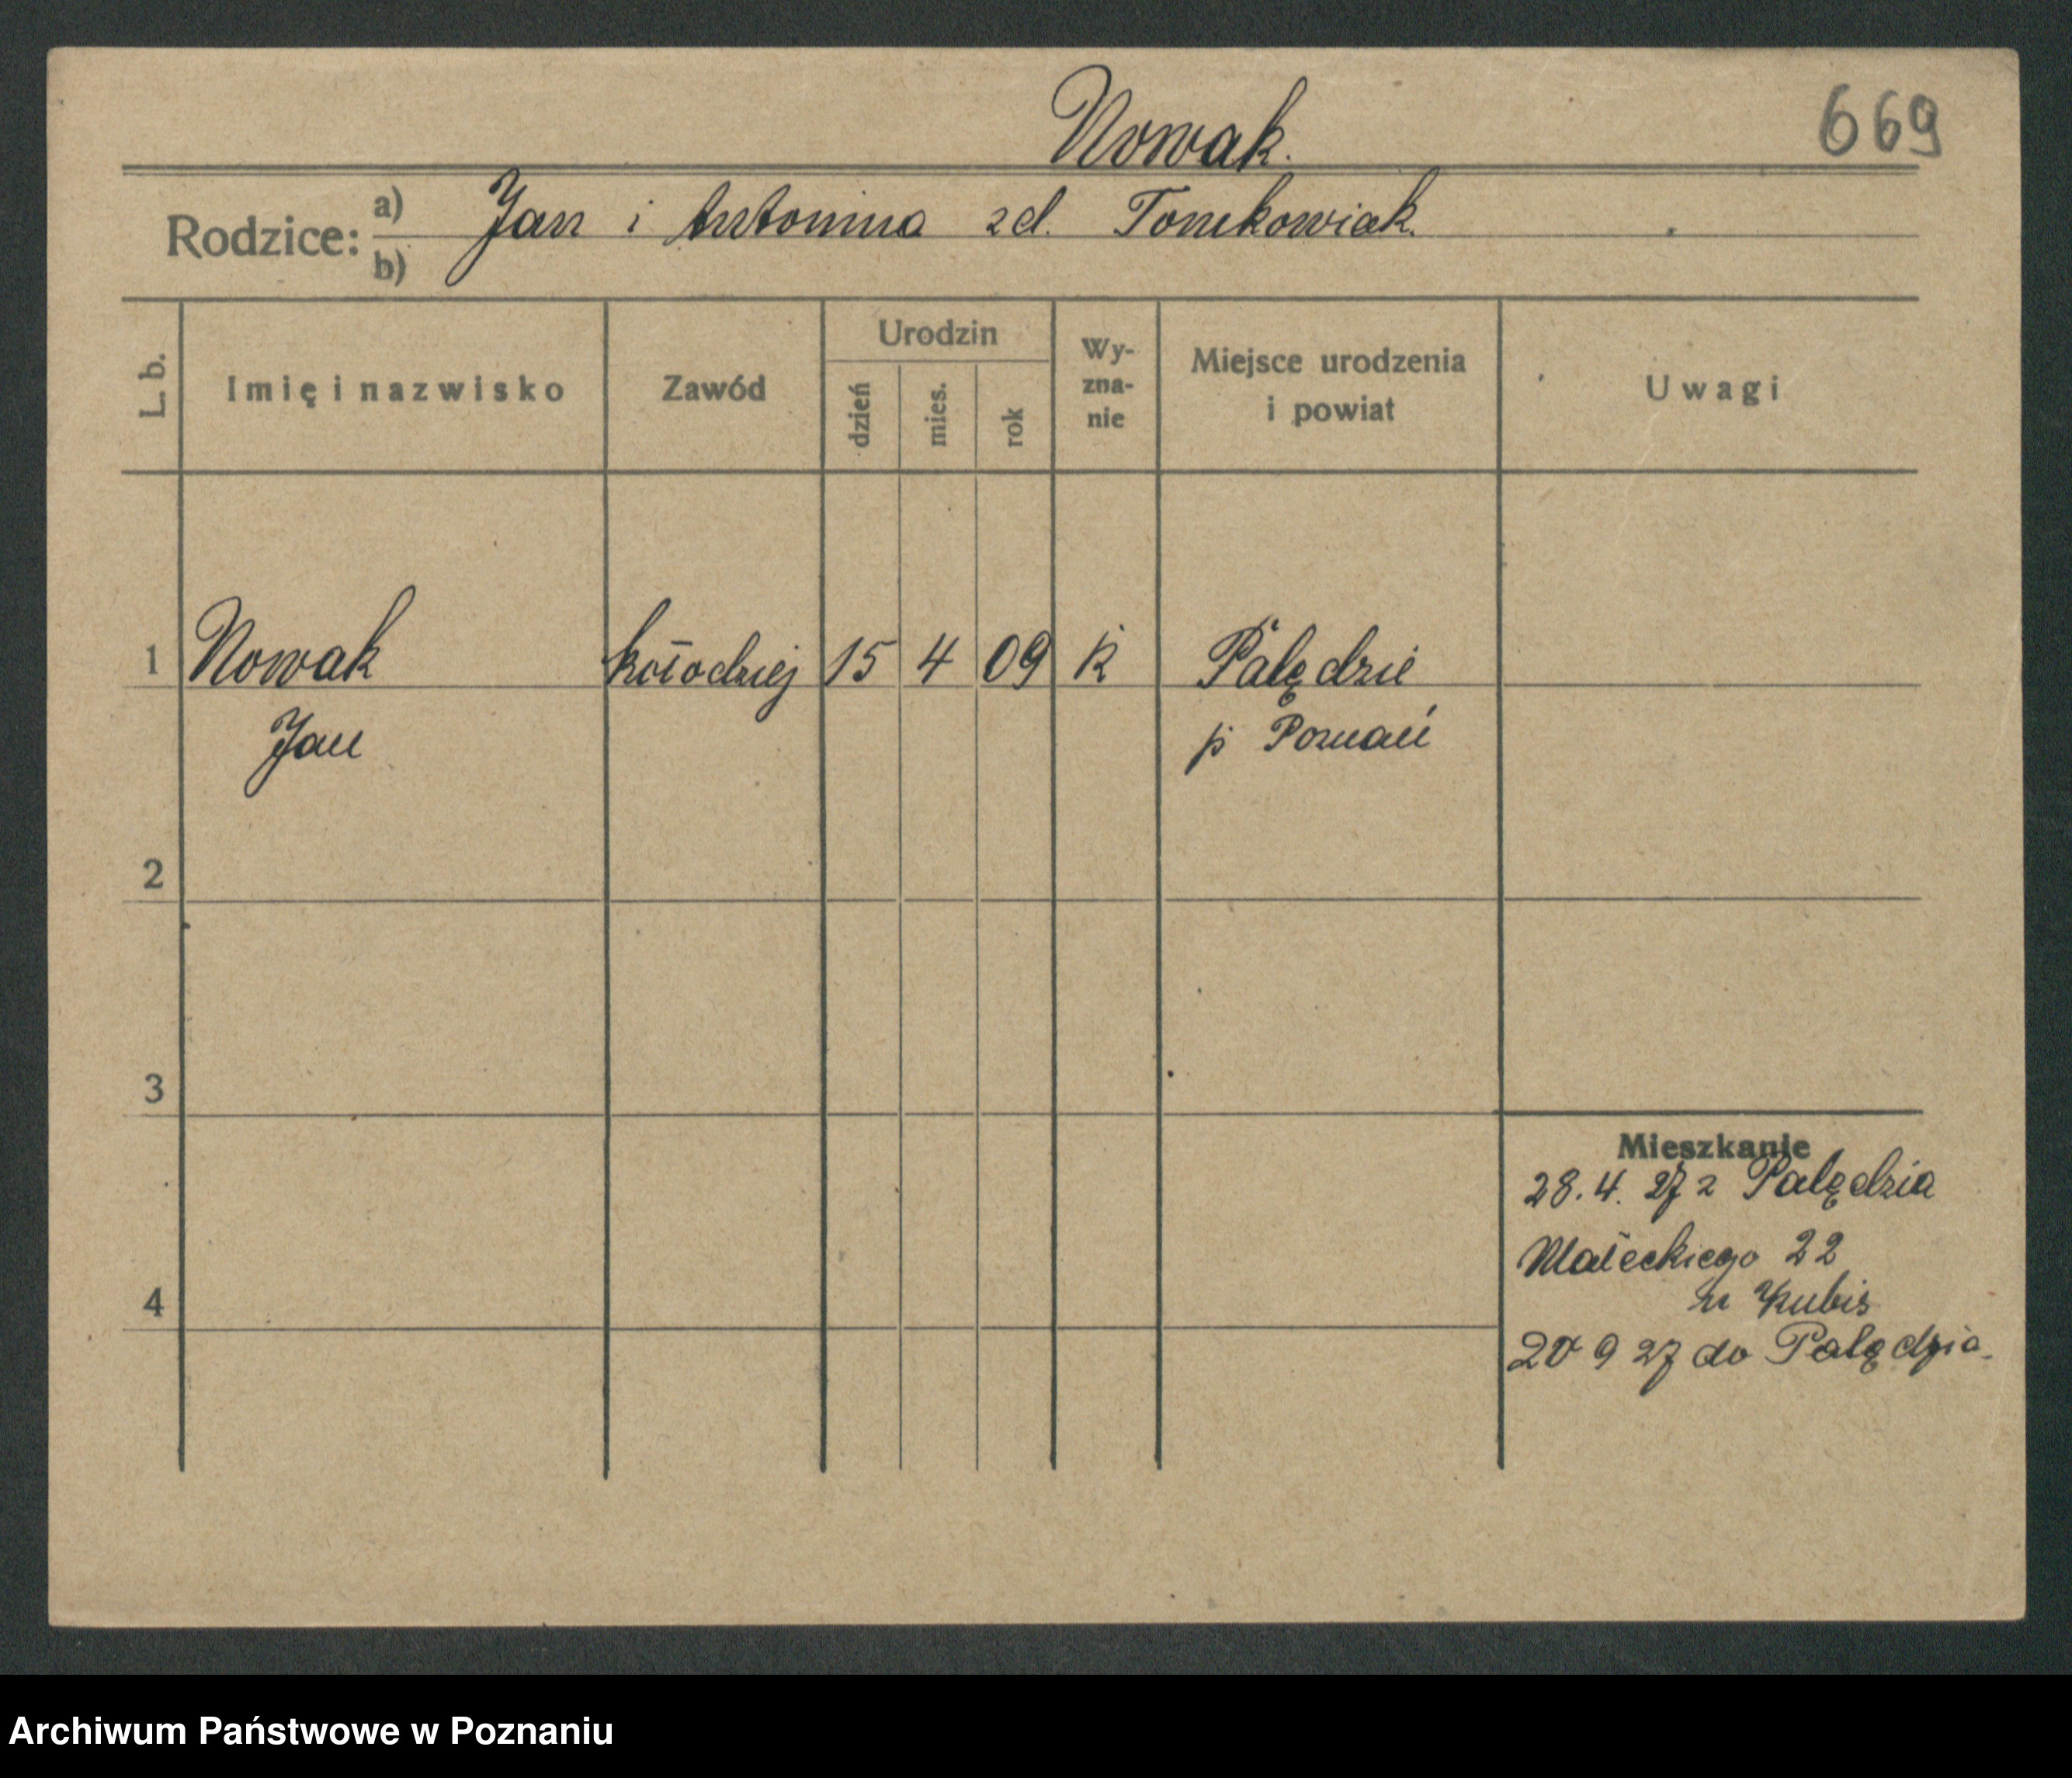 Nowak.
669
Rodzice: a) Jan i Antonina zd. Tomkowiak.
b)
L. b.
Imię i nazwisko
Zawód
Urodzin
dzień
mies.
rok
Wy-
zna-
nie
Miejsce urodzenia
i powiat
Uwagi
1 Nowak kołodziej 15 4 09 k Palędzie
Jan p Poznań
2
3
4
Mieszkanie
28. 4. 27 z Palędzia
Małeckiego 22
u Kubis
20 9 27 do Palędzia
Archiwum Państwowe w Poznaniu